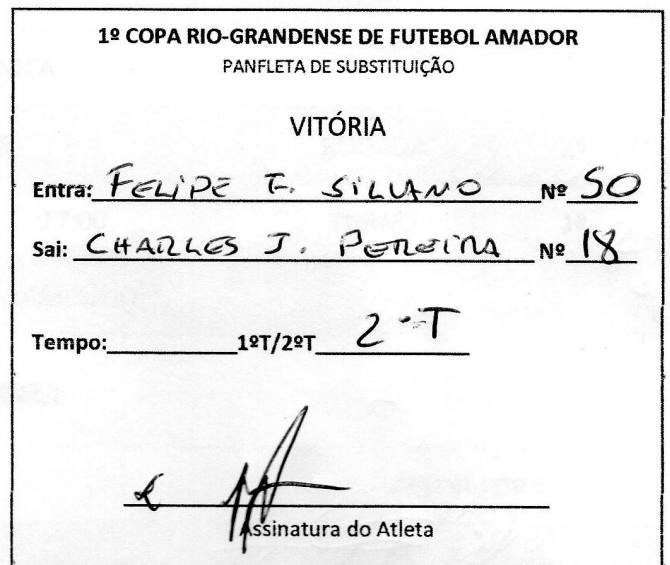 1º COPA RIO-GRANDENSE DE FUTEBOL AMADOR
PANFLETA DE SUBSTITUIÇÃO
VITÓRIA
Entra: FELIPE F. SILVANO Nº 50
Sai: CHARLES J. PEREIRA Nº 18
Tempo:__________1ºT/2ºT 2ºT
Assinatura do Atleta